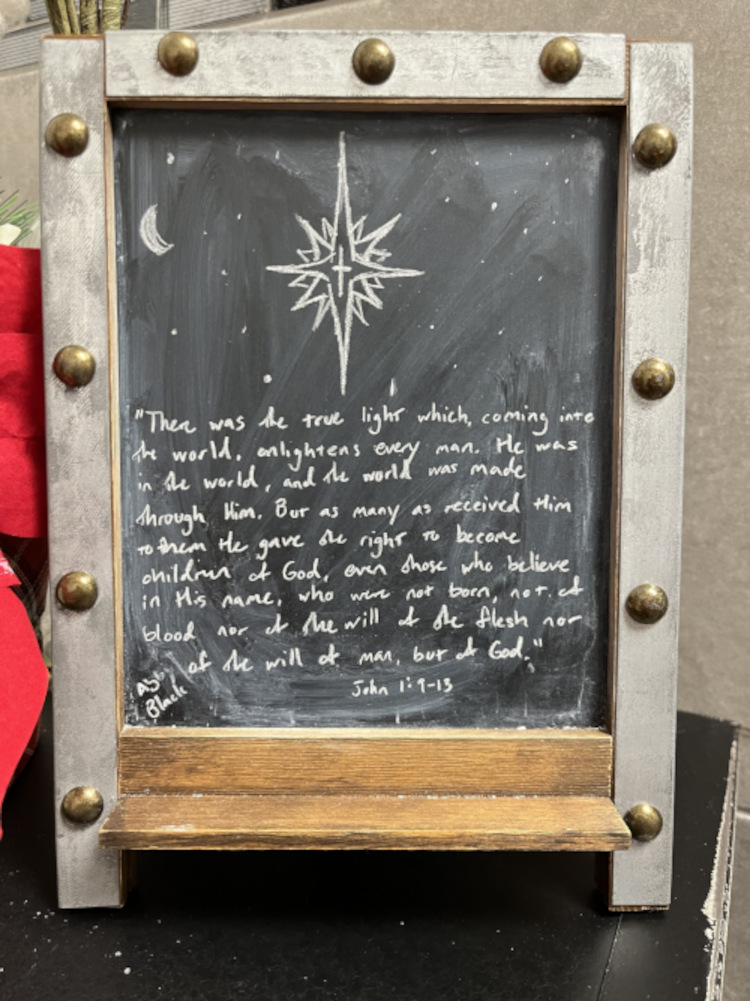 "There was the true light which, coming into
the world, enlightens every man. He was
in the world, and the world was made
through Him. But as many as received Him
to them He gave the right to become
children of God, even those who believe
in His name, who were not born, not of
blood nor of the will of the flesh nor
of the will of man, but of God."
John 1:9-13
Black